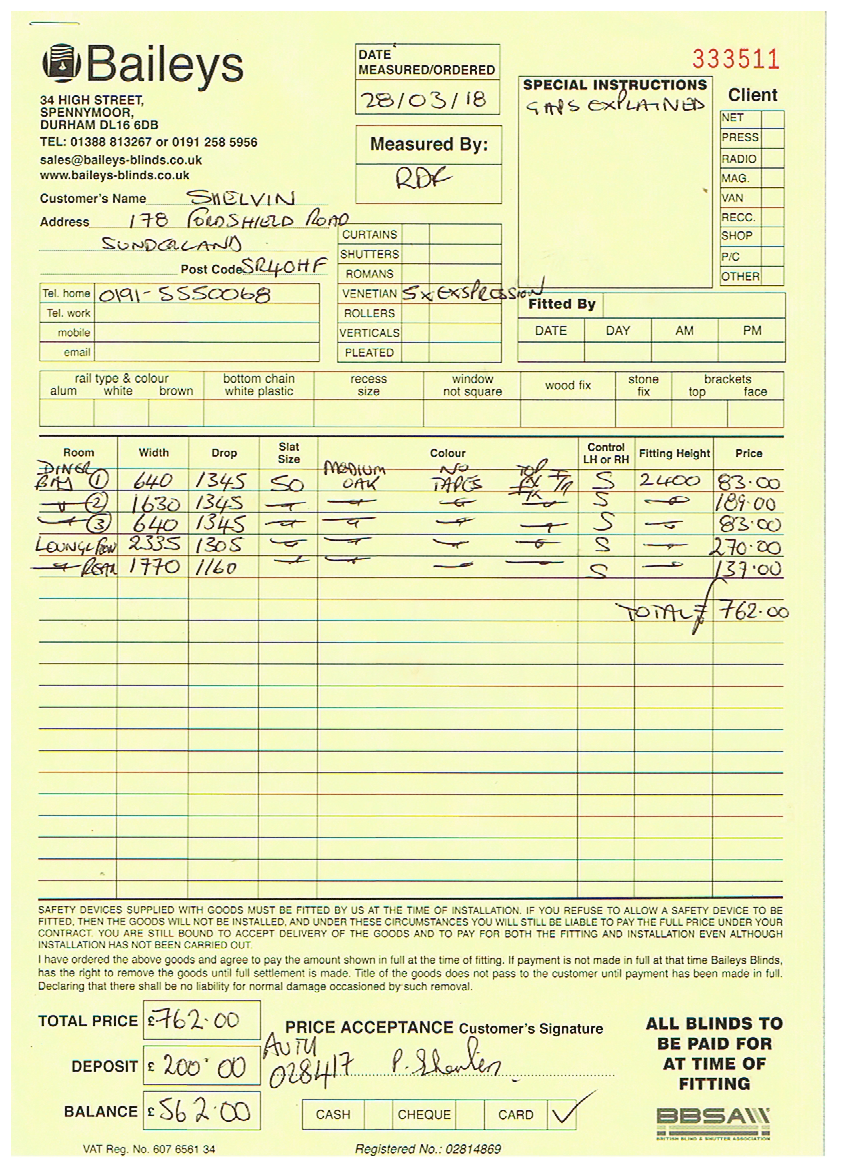 Baileys
34 HIGH STREET,
SPENNYMOOR,
DURHAM DL16 6DB
TEL: 01388 813267 or 0191 258 5956
sales@baileys-blinds.co.uk
www.baileys-blinds.co.uk
DATE MEASURED/ORDERED
28/03/18
Measured By:
RDF
333511
SPECIAL INSTRUCTIONS
GAPS EXPLAINED
Client
NET
PRESS
RADIO
MAG.
VAN
RECC.
SHOP
P/C
OTHER
Customer's Name SHELVIN
Address 178 FORDSHIELD ROAD
SUNDERLAND
Post Code SR4 0HF
Tel. home 0191-5550068
Tel. work
mobile
email
CURTAINS
SHUTTERS
ROMANS
VENETIAN 5x EXSPRESSION
ROLLERS
VERTICALS
PLEATED
Fitted By
DATE DAY AM PM
rail type & colour
alum white brown
bottom chain
white plastic
recess
size
window
not square
wood fix
stone
fix
brackets
top face
Room Width Drop Slat Size Colour Control LH or RH Fitting Height Price
DINER
BAY 1 640 1345 50 MEDIUM OAK NO TAPES TOP FIX S 2400 83.00
2 1630 1345 S 189.00
3 640 1345 S 83.00
LOUNGE 2335 1305 S 270.00
REAR 1770 1160 S 137.00
TOTAL £ 762.00
SAFETY DEVICES SUPPLIED WITH GOODS MUST BE FITTED BY US AT THE TIME OF INSTALLATION. IF YOU REFUSE TO ALLOW A SAFETY DEVICE TO BE
FITTED, THEN THE GOODS WILL NOT BE INSTALLED, AND UNDER THESE CIRCUMSTANCES YOU WILL STILL BE LIABLE TO PAY THE FULL PRICE UNDER YOUR
CONTRACT. YOU ARE STILL BOUND TO ACCEPT DELIVERY OF THE GOODS AND TO PAY FOR BOTH THE FITTING AND INSTALLATION EVEN ALTHOUGH
INSTALLATION HAS NOT BEEN CARRIED OUT.
I have ordered the above goods and agree to pay the amount shown in full at the time of fitting. If payment is not made in full at that time Baileys Blinds,
has the right to remove the goods until full settlement is made. Title of the goods does not pass to the customer until payment has been made in full.
Declaring that there shall be no liability for normal damage occasioned by such removal.
TOTAL PRICE £762.00
DEPOSIT £ 200.00
BALANCE £562.00
PRICE ACCEPTANCE Customer's Signature
AUTH
028417
CASH CHEQUE CARD ✓
ALL BLINDS TO
BE PAID FOR
AT TIME OF
FITTING
BBSA
BRITISH BLIND & SHUTTER ASSOCIATION
VAT Reg. No. 607 6561 34
Registered No.: 02814869